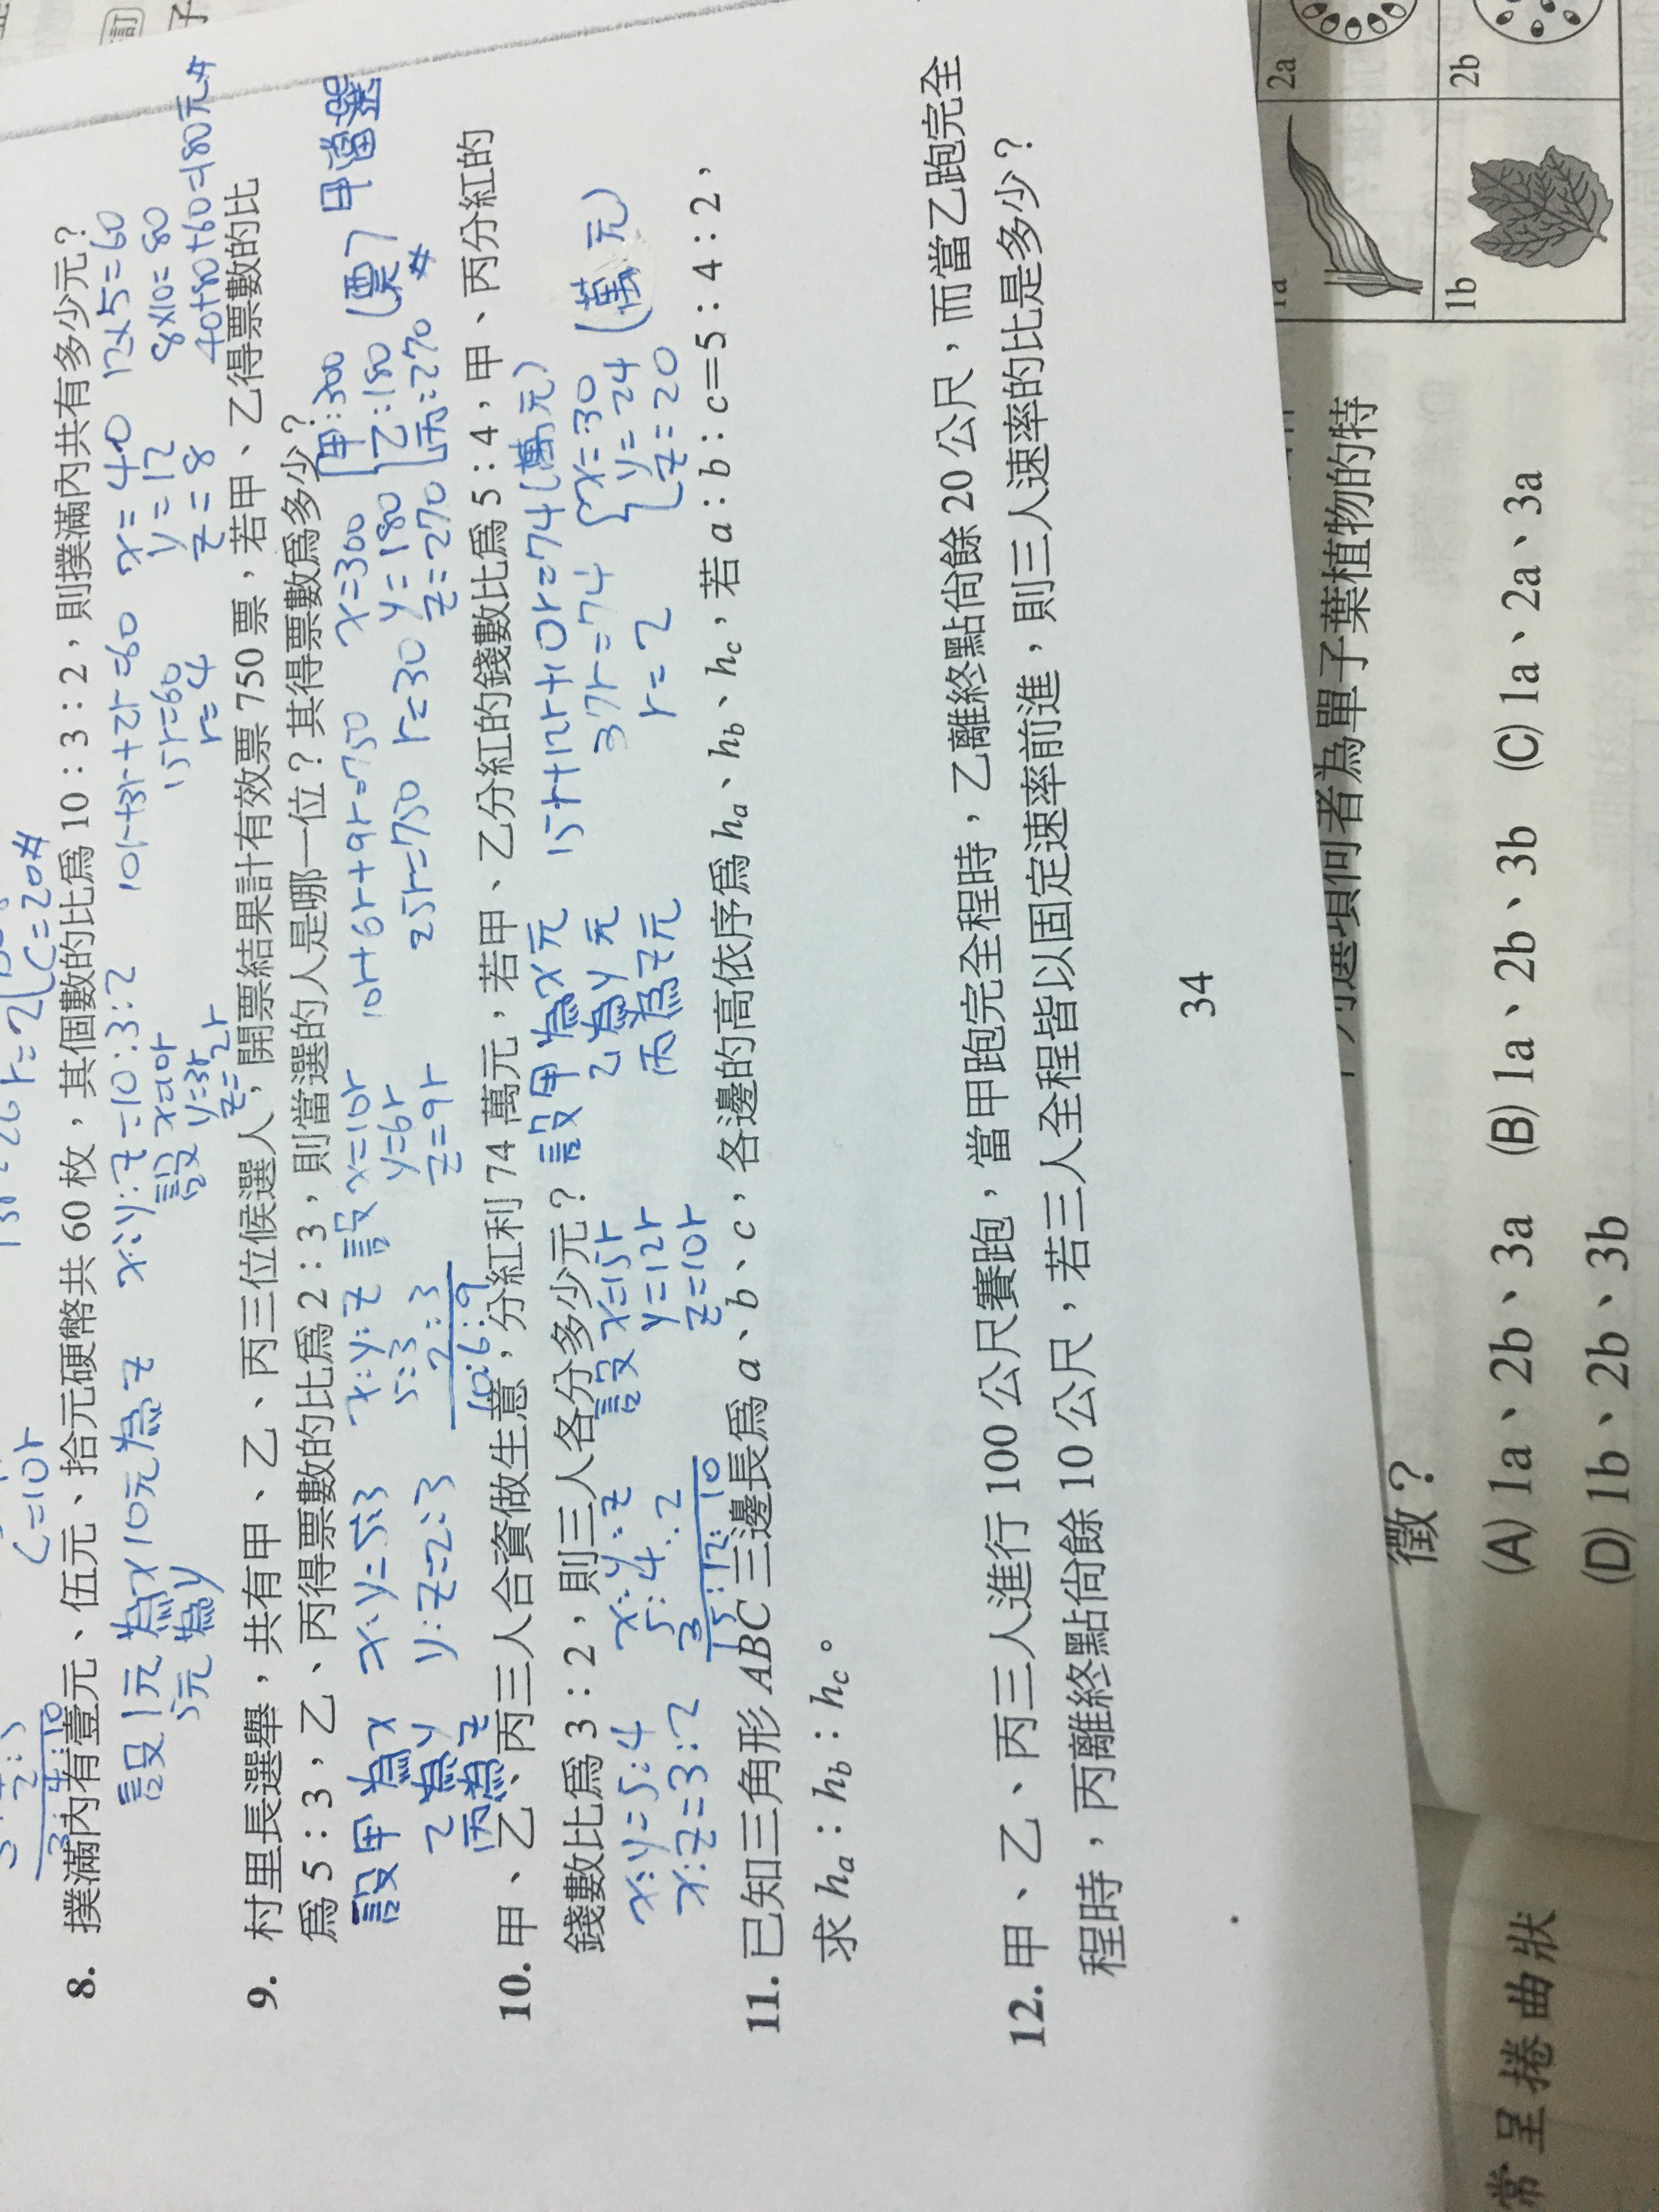 C=10r
r=2
C=20#
訂
8. 撲滿內有壹元、伍元、拾元硬幣共 60 枚，其個數的比爲 10：3：2，則撲滿內共有多少元？
設1元為x 10元為z
5元為y
x:y:z=10:3:2
設x=10r
y=3r
z=2r
10r+3r+2r=60
15r=60
r=4
x=40
y=12
z=8
12×5=60
8×10=80
40+80+60=180元#
9. 村里長選舉，共有甲、乙、丙三位候選人，開票結果計有效票 750 票，若甲、乙得票數的比
爲 5：3，乙、丙得票數的比爲 2：3，則當選的人是哪一位？其得票數爲多少？
設甲為x
乙為y
丙為z
x:y=5:3
y:z=2:3
x:y:z
5:3
2:3
10:6:9
設x=10r
y=6r
z=9r
10r+6r+9r=750
25r=750 r=30
x=300
y=180
z=270
甲:300
乙:180 (票) 甲當選
丙:270 #
10. 甲、乙、丙三人合資做生意，分紅利 74 萬元，若甲、乙分紅的錢數比爲 5：4，甲、丙分紅的
錢數比爲 3：2，則三人各分多少元？
x:y=5:4
x:z=3:2
x:y:z
5:4
3 2
15:12:10
設x=15r
y=12r
z=10r
設甲為x元
乙為y元
丙為z元
15r+12r+10r=74(萬元)
37r=74
r=2
x=30
y=24 (萬元)
z=20
11. 已知三角形 ABC 三邊長爲 a、b、c，各邊的高依序爲 hₐ、h_b、h_c，若 a：b：c=5：4：2，
求 hₐ：h_b：h_c。
12. 甲、乙、丙三人進行 100 公尺賽跑，當甲跑完全程時，乙離終點尙餘 20 公尺，而當乙跑完全
程時，丙離終點尙餘 10 公尺，若三人全程皆以固定速率前進，則三人速率的比是多少？
34
選項何者為單子葉植物的特
徵？
(A) 1a、2b、3a (B) 1a、2b、3b (C) 1a、2a、3a
(D) 1b、2b、3b
1a
2a
1b
2b
常呈捲曲狀